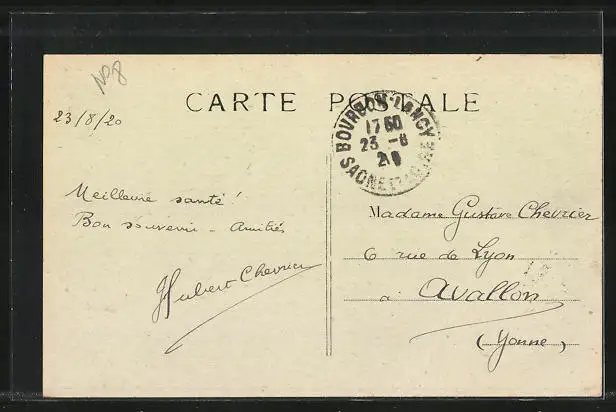 No 8
CARTE POSTALE
23/8/20
BOURBON-LANCY
17 50
23 - 8
20
SAONE-ET-LOIRE
Meilleure santé!
Bon souvenir - Amitiés
Hubert Chevrier
Madame Gustave Chevrier
6 rue de Lyon
à Avallon
(Yonne)